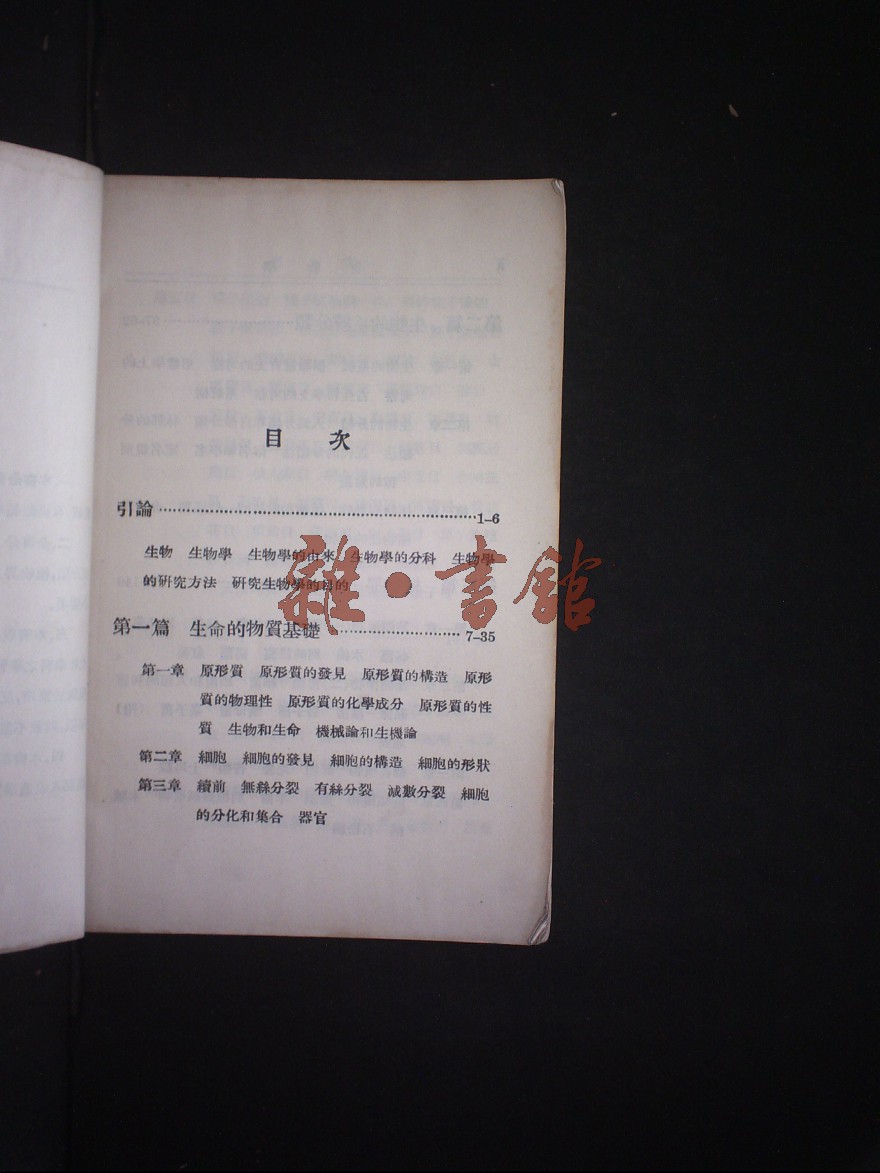 目 次
引論……………………………………………1–6
生物 生物學 生物學的由來 生物學的分科 生物學
的研究方法 研究生物學的目的
第一篇 生命的物質基礎………………7–35
第一章 原形質 原形質的發見 原形質的構造 原形
質的物理性 原形質的化學成分 原形質的性
質 生物和生命 機械論和生機論
第二章 細胞 細胞的發見 細胞的構造 細胞的形狀
第三章 續前 無絲分裂 有絲分裂 減數分裂 細胞
的分化和集合 器官
雜·書館